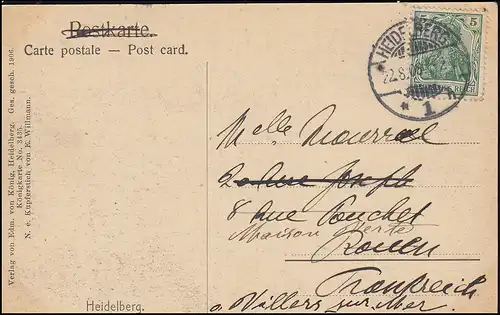 Postkarte.
Carte postale — Post card.
HEIDELBERG
22.8.
* 1
5
REICH
Melle
8 Rue Pouchet
Maison Verte
Rouen
Frankreich
Villers sur Mer
Heidelberg.
Verlag von Edm. von König, Heidelberg. Ges. gesch. 1906.
Königkarte No. 3435.
N. e. Kupferstich von E. Willmann.